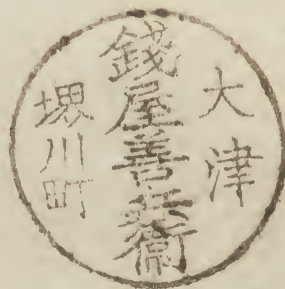 大津
錢屋善兵衞
堺川町